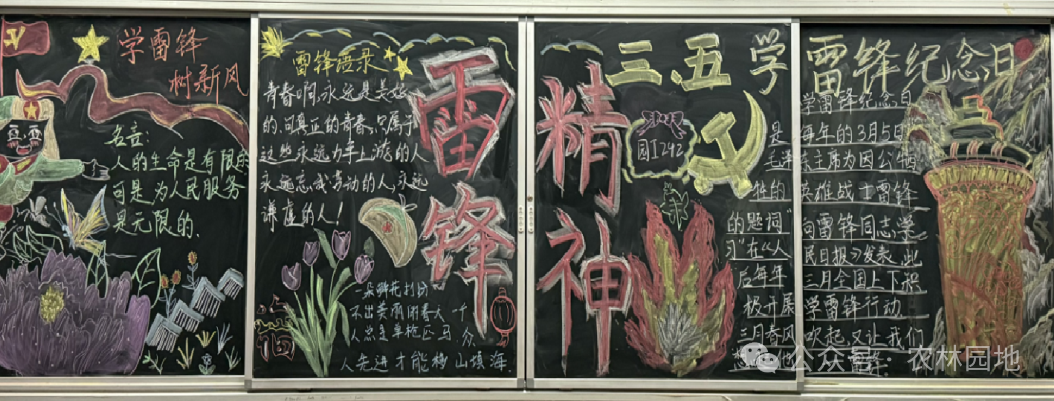 学雷锋
树新风
名言:
人的生命是有限的
可是为人民服务
是无限的.
雷锋语录
青春啊,永远是美好
的,可真正的青春,只属于
这些永远力争上游的人
永远忘我劳动的人,永远
谦虚的人!
一朵鲜花打扮
不出美丽的春天
人先进才能移山填海.
雷锋
精神
园工242
三.五学雷锋纪念日
学雷锋纪念日
是每年的3月5日
毛泽东主席为因公牺
牲的英雄战士雷锋
的题词"向雷锋同志学
习"在《人民日报》发表.此
后每年三月全国上下积
极开展学雷锋行动
三月春风吹起,又让我们
公众号:农林园地